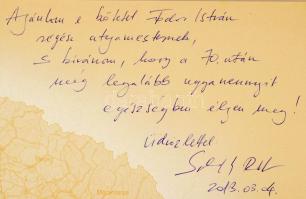 Ajánlom e kötetet Fodor István
régész utyamesternek,
s kívánom, hogy a 70. után
még legalább ugyanennyit
egészségben éljen meg!
Üdvözlettel
2013.03.04.